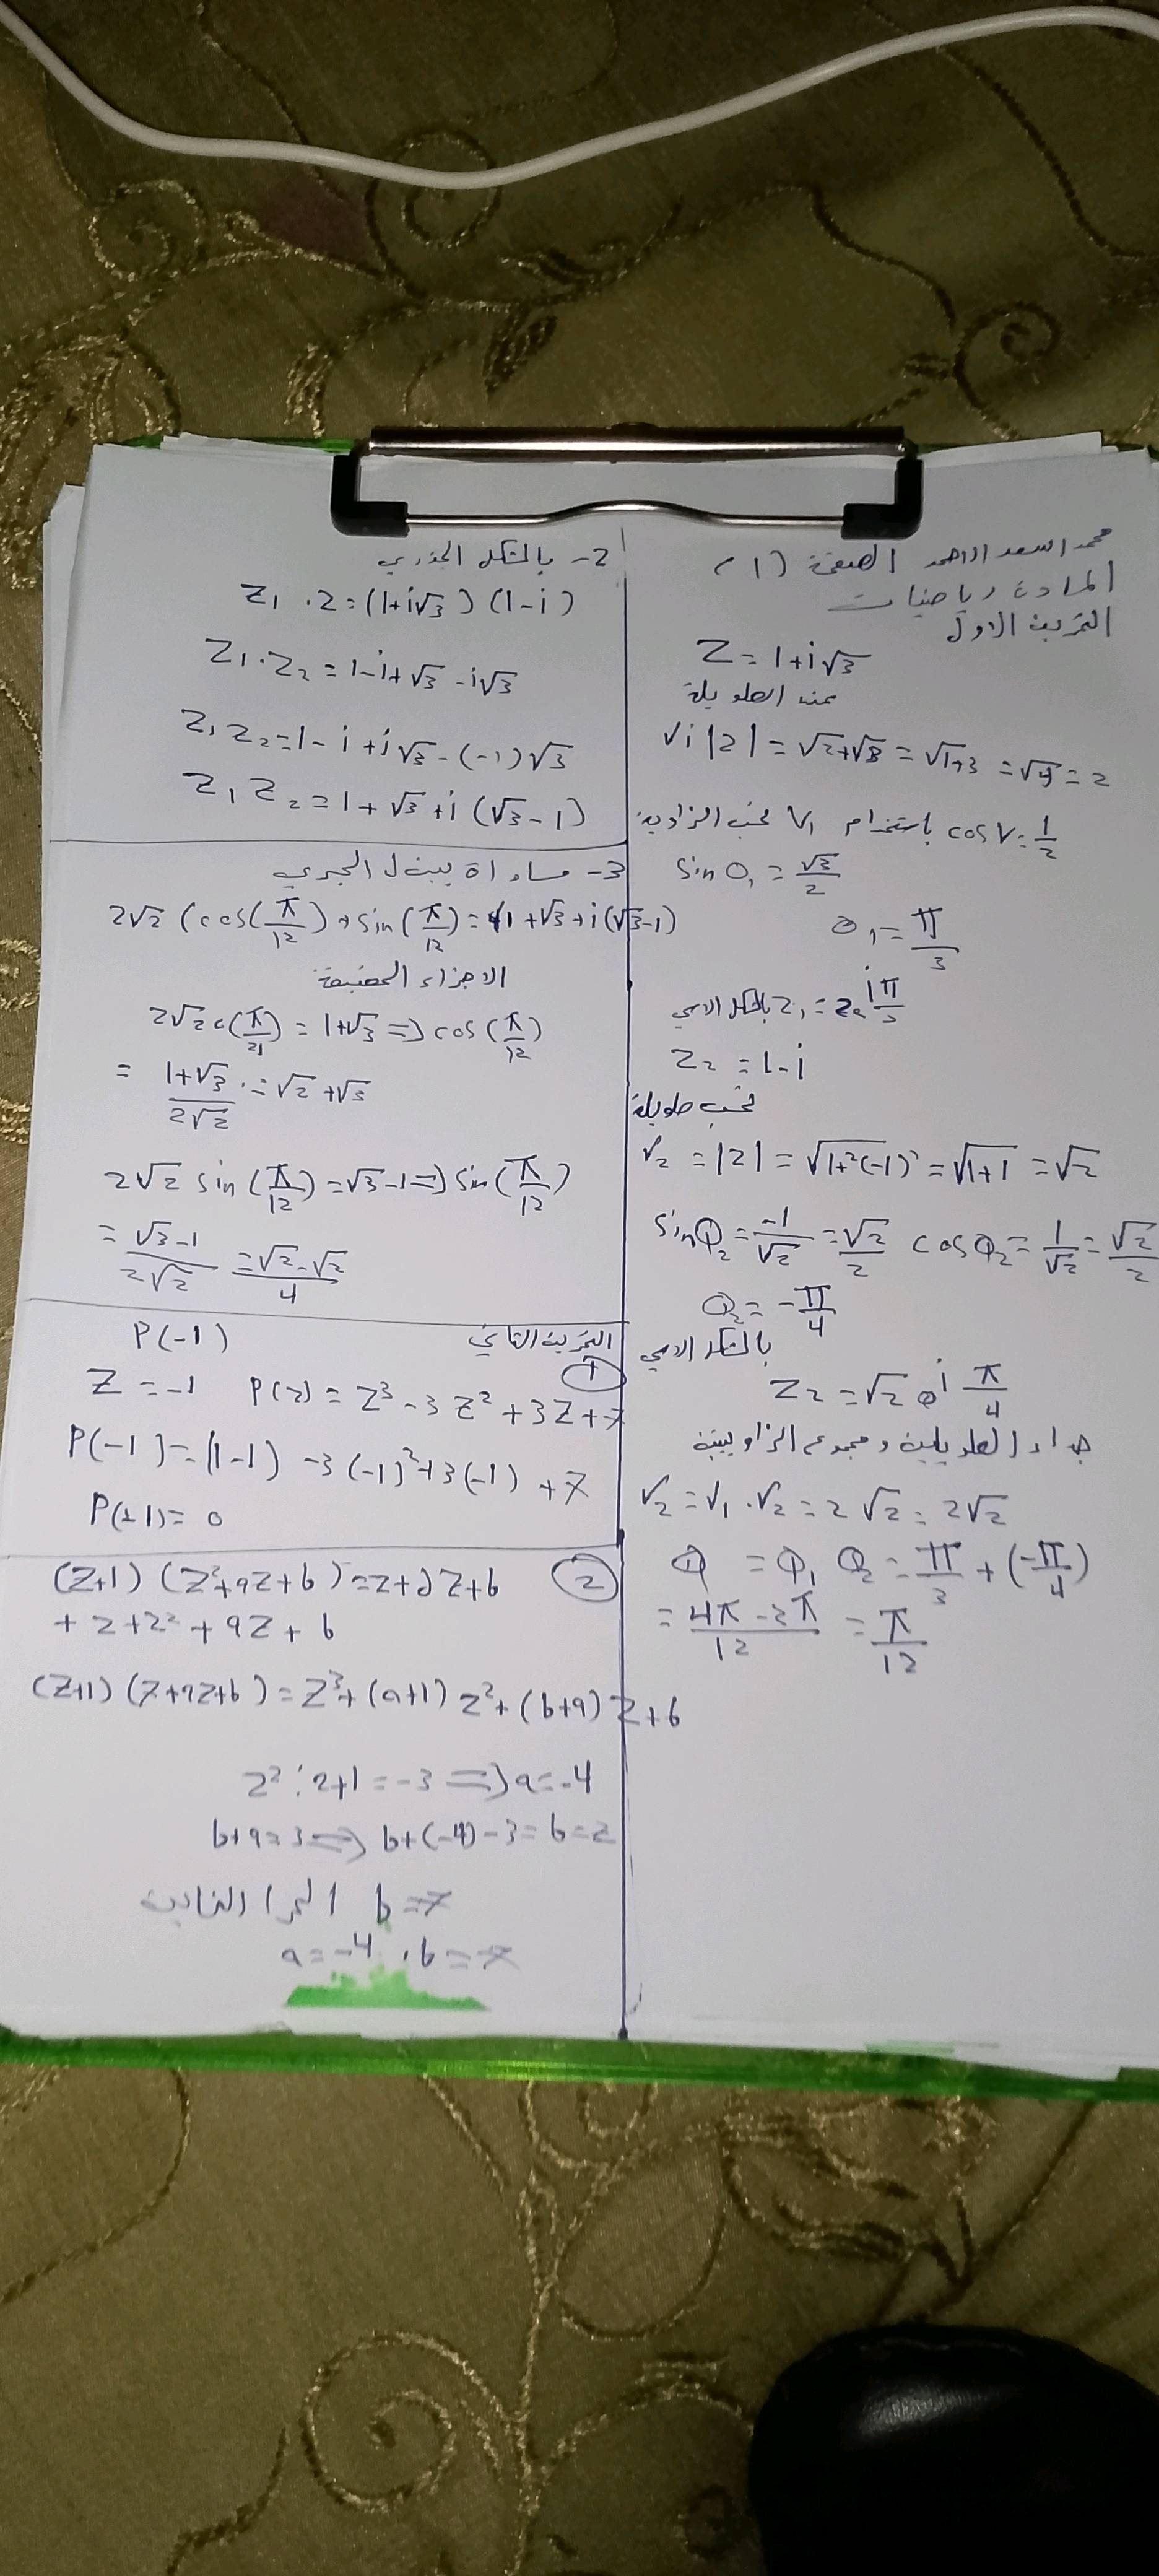 محمد اسعد الاحمد الصفحة (1)
المادة رياضيات
التمرين الاول
Z = 1+i√3
√i |2| = √2+√3 = √1+3 = √4 = 2
نحسب الزاوية V1 باستخدام cos V = 1/2
sin O1 = √3/2
θ1 = π/3
Z2 = 1-i
نحسب طويلة
r2 = |2| = √1+2(-1)² = √1+1 = √2
sin Q2 = -1/√2 = √2/2 cos Q2 = 1/√2 = √2/2
Q2 = -π/4
بالشكل الاسي
Z2 = √2 e^i π/4
جداء الطويلين ومجموع الزاويتين
r2 = r1 . r2 = 2 √2 = 2√2
Q = Q1 Q2 = π/3 + (-π/4)
= 4π -3π/12 = π/12
2- بالشكل الجذري
Z1 .2 = (1+i√3) (1-i)
Z1.Z2 = 1-i+√3 -i√3
Z1 Z2 = 1- i +i√3 - (-1)√3
Z1 Z2 = 1+ √3 +i (√3-1)
3- مساواة الجبري
2√2 (cos(π/12)+sin(π/12) = 1+√3+i(√3-1)
الاجزاء الحقيقية
2√2 c(π/21) = 1+√3 => cos (π/12)
= 1+√3/2√2 = √2 +√3
2√2 sin (π/12) = √3-1 => sin (π/12)
= √3-1/2√2 = √2-√2/4
التمرين الثاني
P(-1)
①
Z = -1 P(z) = Z³ -3 Z² +3Z+7
P(-1) = (1-1) -3(-1)²+3(-1) +7
P(±1) = 0
②
(Z+1) (Z²+aZ+b) = z+2Z+b
+ z+2² + 9Z + b
(Z+1) (Z+aZ+b) = Z³+(a+1) z²+(b+a) Z+b
z² : 2+1 = -3 => a = -4
b+a = 3 => b+(-4)-3 = b = 2
b = 7
a = -4 . b = 7